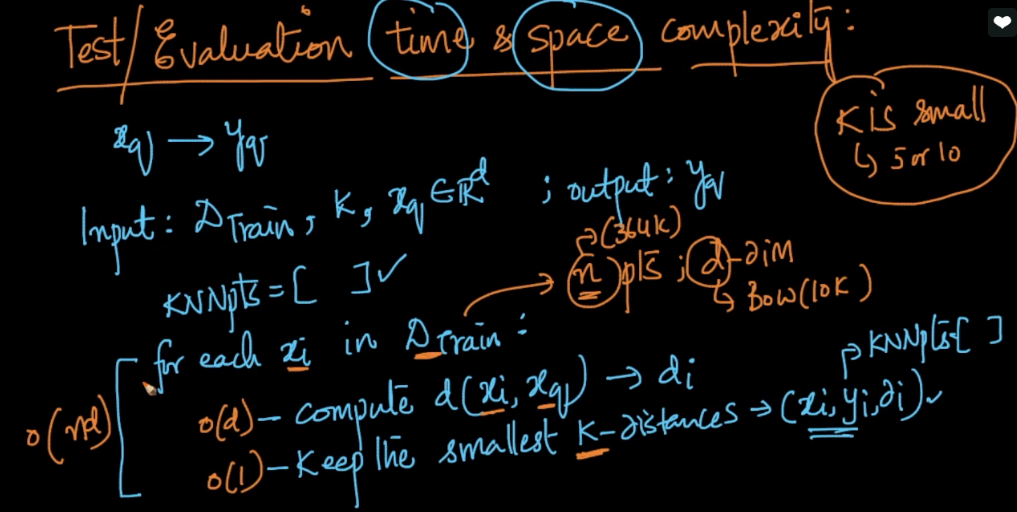 Test/Evaluation time & space complexity:
K is small
↳ 5 or 10
xq → yq
Input: DTrain, K, xq ∈ ℝd ; output: yq
(364K)
KNNpts = [ ] ✓
n pts ; d-dim
↳ BOW(10K)
for each xi in DTrain:
KNNpts[ ]
o(nd)
o(d) – compute d(xi, xq) → di
o(1) – Keep the smallest K-distances → (xi, yi, di) ✓